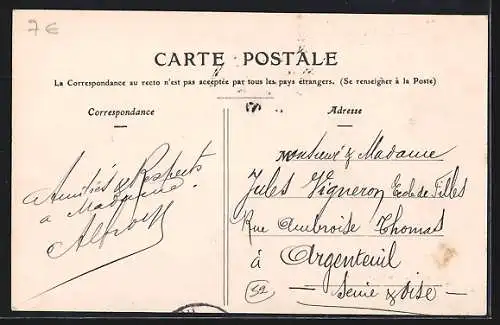 7€
CARTE POSTALE
La Correspondance au recto n'est pas acceptée par tous les pays étrangers. (Se renseigner à la Poste)
Correspondance
Amitiés & Respects
a Madame.
Adresse
Monsieur & Madame
Jules Vigneron Ecole de Filles
Rue Ambroise Thomas
à Argenteuil
52
Seine & Oise